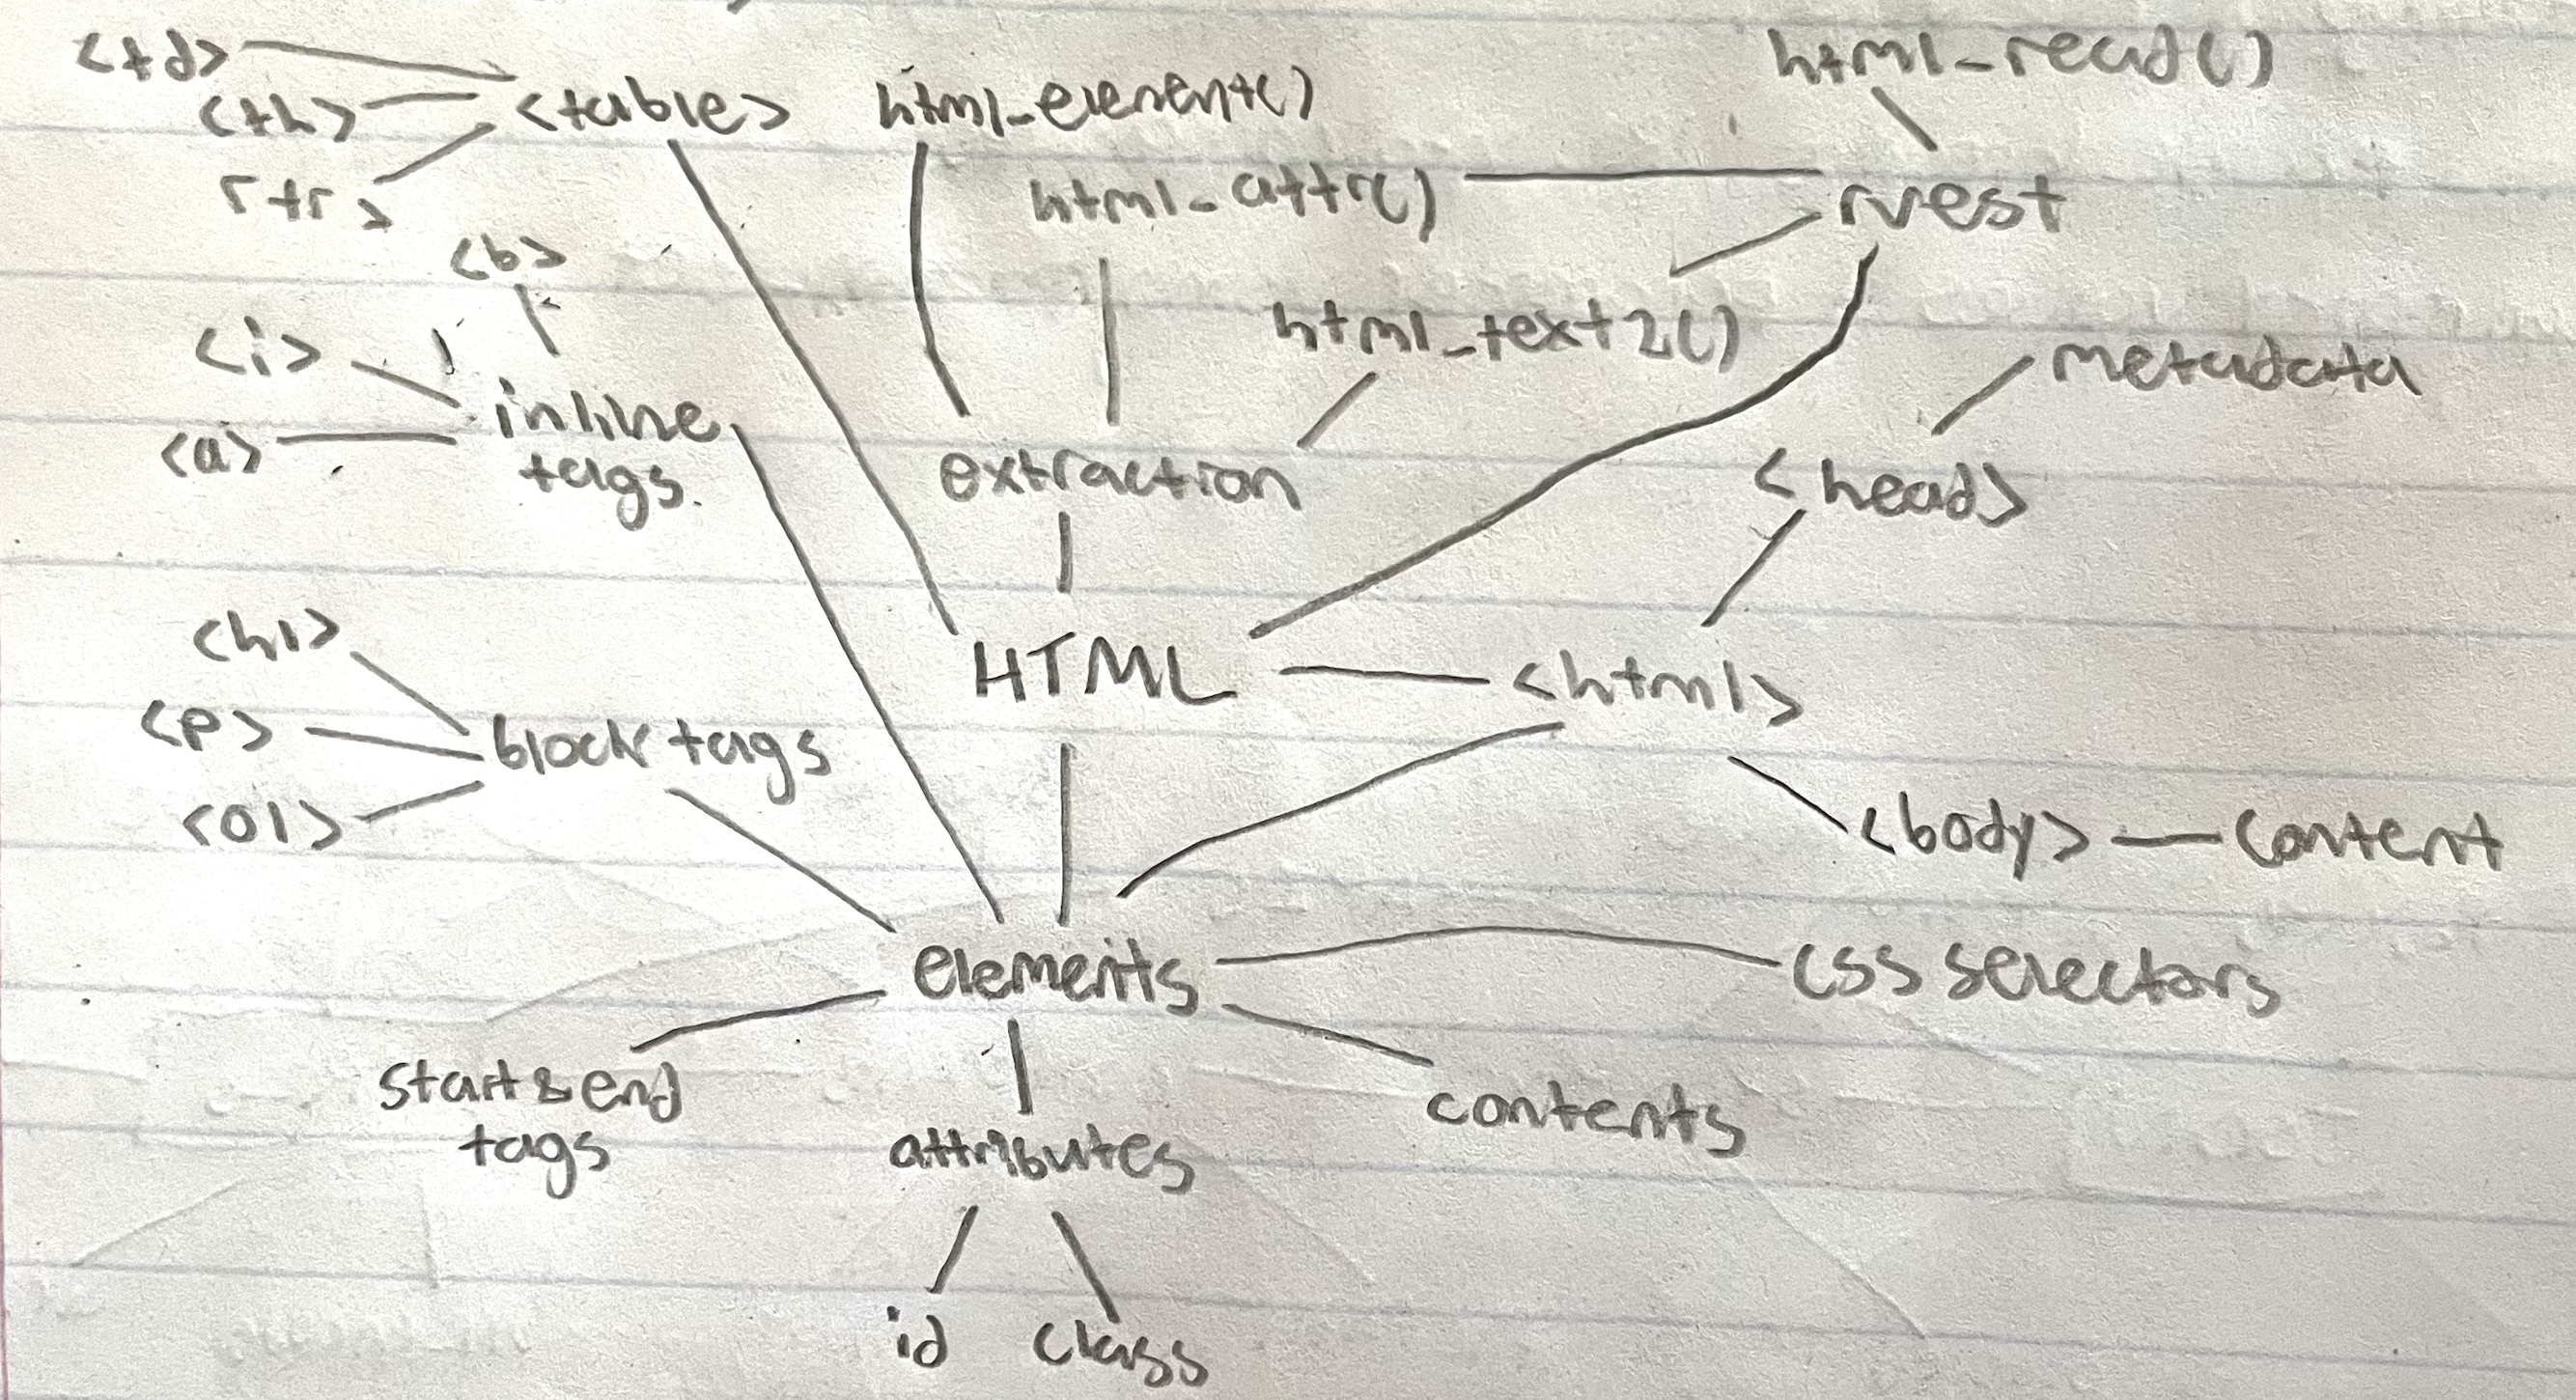 <td>
<th>
<tr>
<table>
html_element()
html_read()
html_attr()
rvest
<b>
<i>
<a>
inline
tags.
html_text2()
extraction
metadata
<head>
<h1>
<p>
<ol>
block tags
HTML
<html>
<body>
content
elements
css selectors
start & end
tags
attributes
contents
id
class